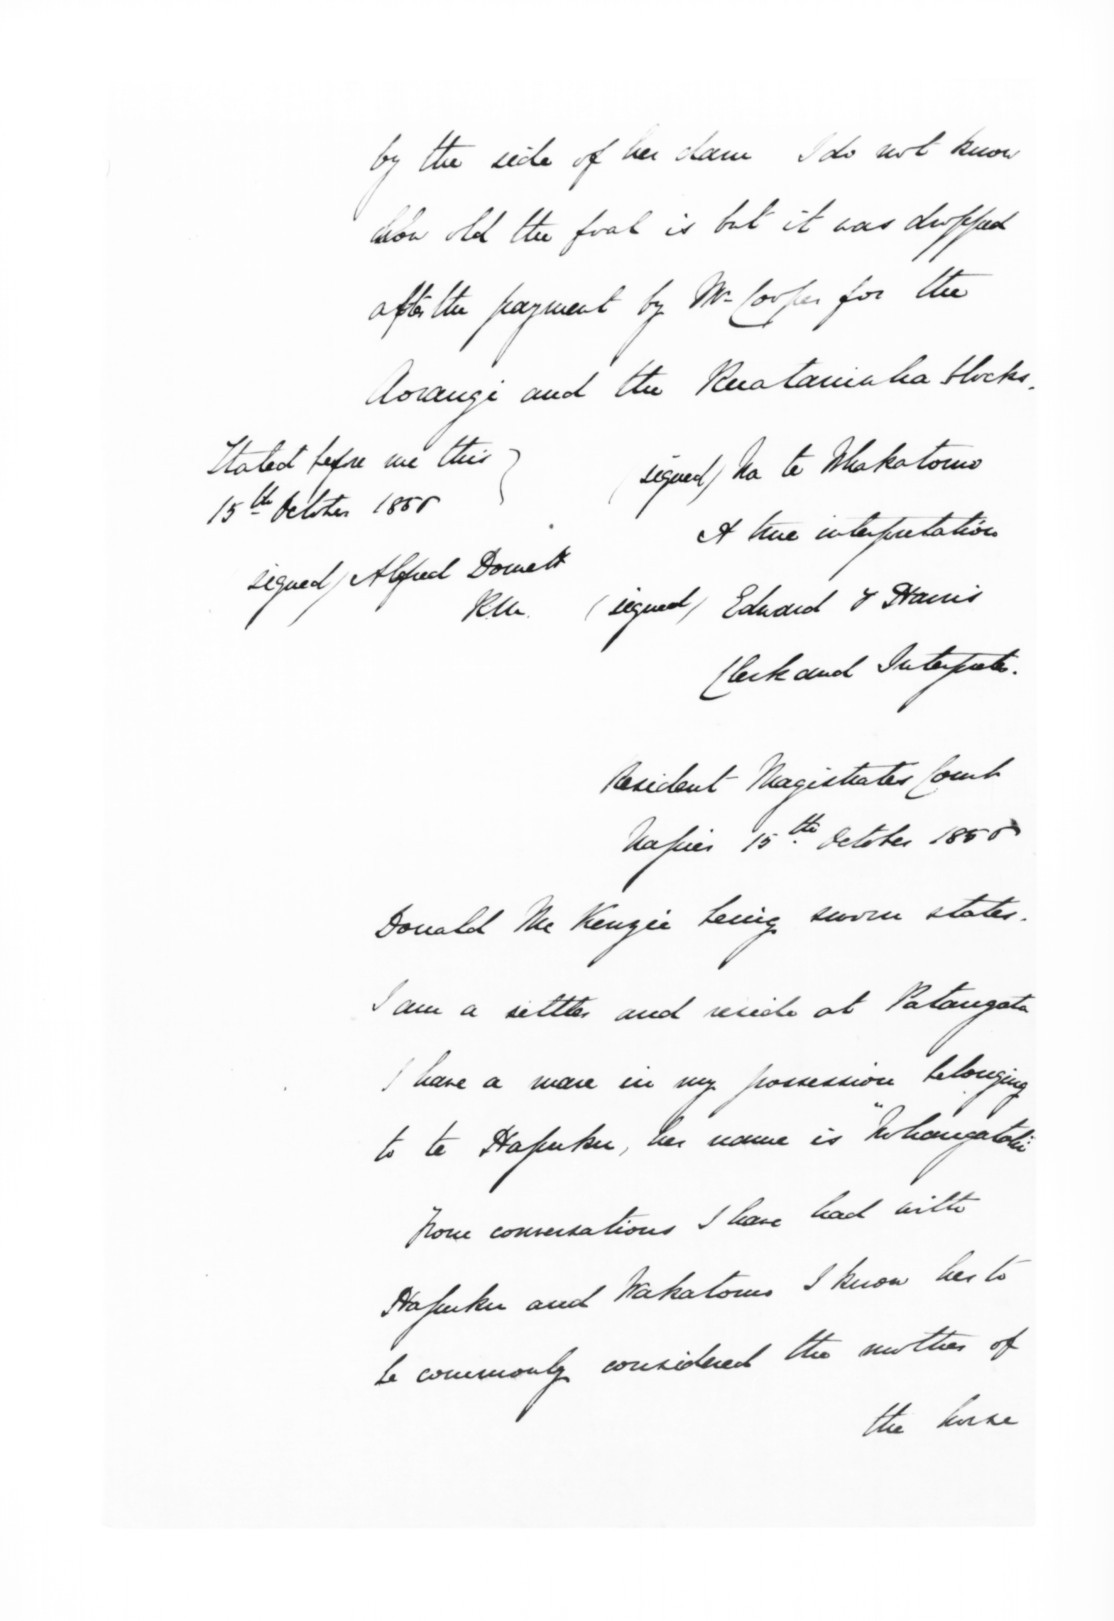 by the side of her dam I do not know
how old the foal is but it was dropped
after the payment by Mr Cooper for the
Aorangi and the Ruataniwha blocks.
Stated before me this
15th October 1858
signed) Alfred Domett
R.M.
(signed) Na te Whakatomo
A true interpretation
(signed) Edward F Harris
Clerk and Interpreter.
Resident Magistrates Court
Napier 15th October 1858
Donald McKenzie being sworn states.
I am a settler and reside at Patangata
I have a mare in my possession belonging
to te Hapuku, her name is "Whangataki
From conversations I have had with
Hapuku and Wakatomo I know her to
be commonly considered the mother of
the horse